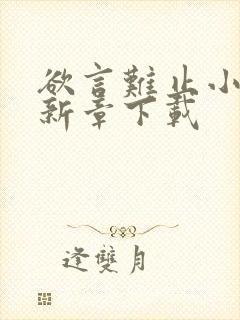 欲言難止小
新章下載
逢雙月